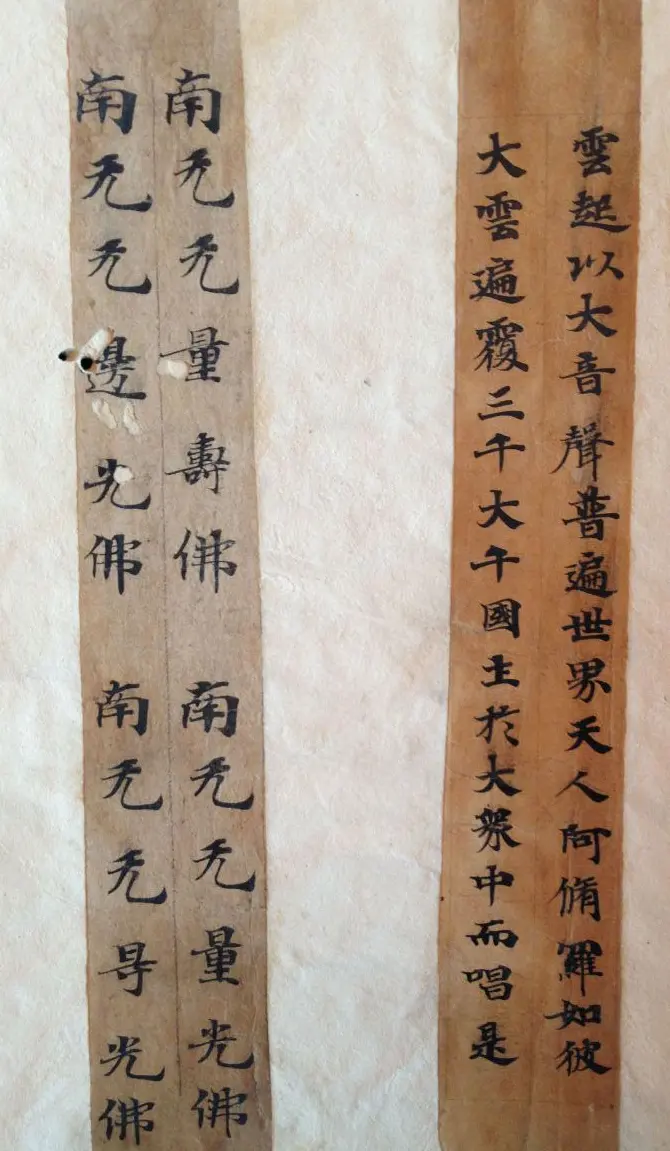 雲起以大音聲普遍世界天人阿脩羅如彼
大雲遍覆三千大千國土於大衆中而唱是
南无无量壽佛 南无无量光佛
南无无邊光佛 南无无㝵光佛